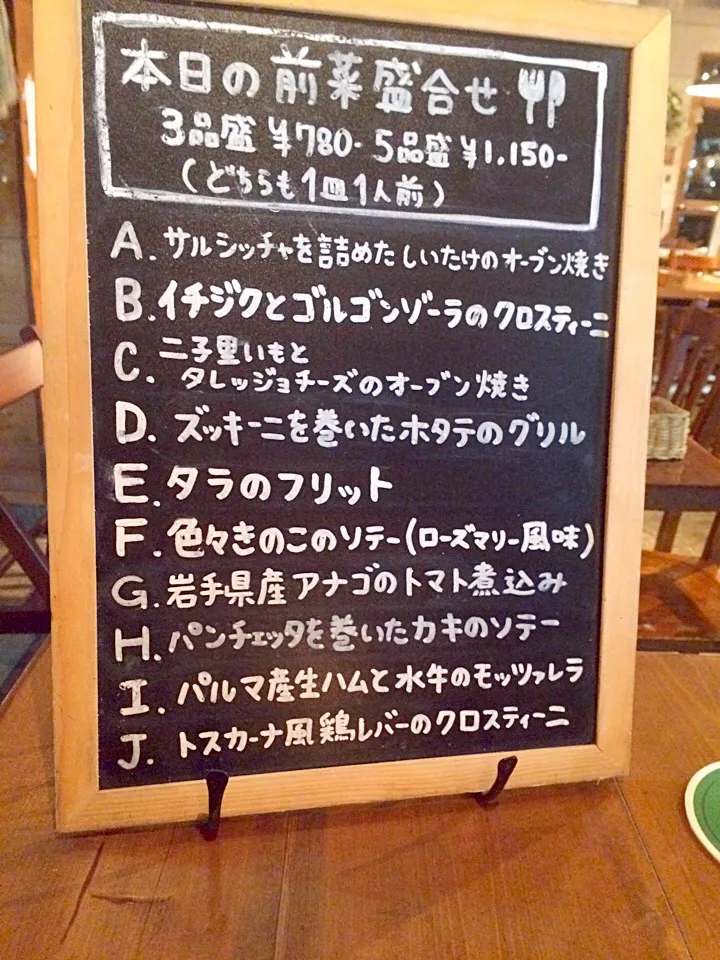 本日の前菜盛合せ
3品盛 ¥780- 5品盛 ¥1,150-
(どちらも1皿1人前)
A. サルシッチャを詰めたしいたけのオーブン焼き
B. イチジクとゴルゴンゾーラのクロスティーニ
C. 二子里いもと
タレッジョチーズのオーブン焼き
D. ズッキーニを巻いたホタテのグリル
E. タラのフリット
F. 色々きのこのソテー(ローズマリー風味)
G. 岩手県産アナゴのトマト煮込み
H. パンチェッタを巻いたカキのソテー
I. パルマ産生ハムと水牛のモッツァレラ
J. トスカーナ風鶏レバーのクロスティーニ